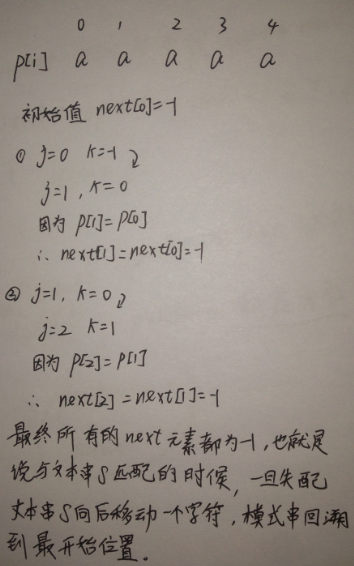 0 1 2 3 4
p[i] a a a a a
初始值 next[0]=-1
① j=0 k=-1
j=1, k=0
因为 p[1]=p[0]
∴ next[1]=next[0]=-1
② j=1, k=0
j=2 k=1
因为 p[2]=p[1]
∴ next[2]=next[1]=-1
最终所有的next元素都为-1,也就是
说与文本串S匹配的时候,一旦失配
文本串S向后移动一个字符,模式串回溯
到最开始位置.